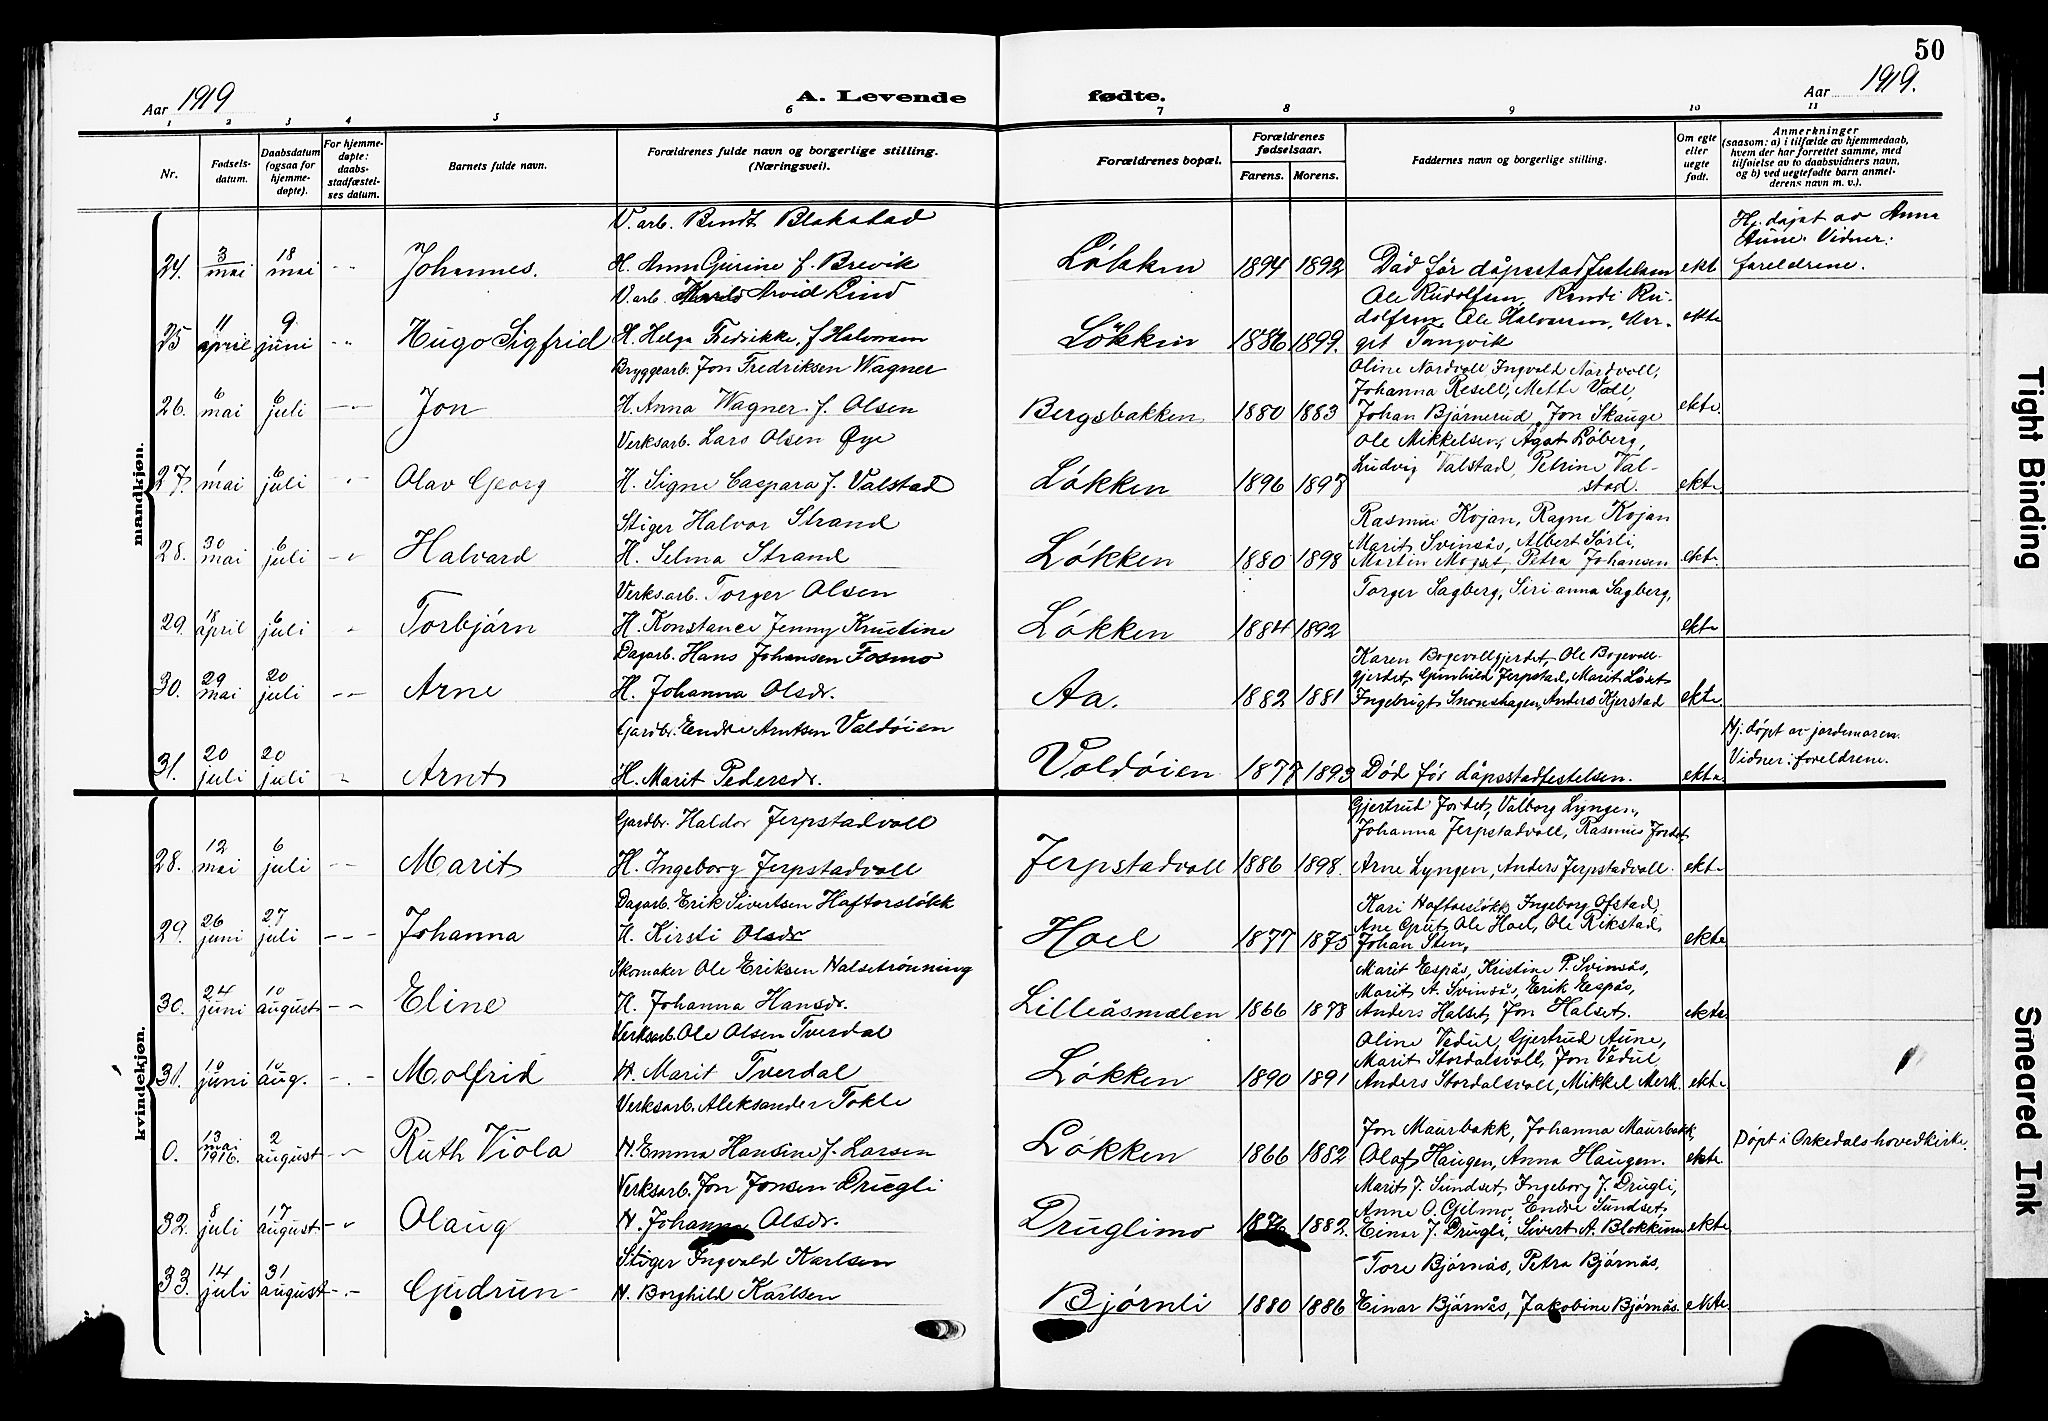 50
Aar 1919 A. Levende fødte. Aar 1919.
1 2 3 4 5 6 7 8 9 10 11
Nr.
Fødsels-
datum.
Daabsdatum
(ogsaa for
hjemme-
døpte).
For hjemme-
døpte:
daabs-
stadfæstel-
ses datum.
Barnets fulde navn.
Forældrenes fulde navn og borgerlige stilling.
(Næringsvei).
Forældrenes bopæl.
Forældrenes
fødselsaar.
Farens. Morens.
Faddernes navn og borgerlige stilling.
Om egte
eller
uegte
født.
Anmerkninger
(saasom: a) i tilfælde av hjemmedaab,
hvem der har forrettet samme, med
tilføielse av to daabsvidners navn,
og b) ved uegtefødte barn anmel-
derens navn m. v.).
mandkjøn.
V. arb. Bendt Blokstad
Hj. døpt av Anna
Aune. Vidner:
24. 3/mai 18 mai -"- Johannes. H. Anna Gurine f. Brevik Løkken 1894 1892 Død før dåpsstadfestelsen ekte foreldrene.
V. arb. Arvid Lind
Ole Rudolfsen, Randi Ru-
dolfsen, Ole Halvorsen, Mar-
25 11 april 9 juni -"- Hugo Sigfrid H. Helga Fredrikke, f Halvorsen Løkken 1886 1899. git Tangvik ekte
Bryggearb. Jon Fredriksen Wagner
Oline Nordvoll, Ingvald Nordvoll,
Johanna Resell, Mette Voll,
26. 6 mai 6 juli -"- Jon H. Anna Wagner f. Olsen Bergsbakken 1880 1883 Johan Bjørnerud, Jon Skauge ekte
Verksarb. Lars Olsen Øye
Ole Mikkelsen, Agat Løberg,
Ludvig Valstad, Petrine Val-
27. 1 mai 6 juli -"- Olav Georg H. Signe Caspara f. Valstad Løkken 1896 1897 stad. ekte
Stiger Halvor Strand
Rasmus Kojan, Ragne Kojan
Marit Svinsås, Albert Sørli,
28. 30 mai 6 juli -"- Halvard H. Selma Strand Løkken 1880 1898 Martin Moset, Petra Johansen ekte
Verksarb. Torger Olsen
Torger Sagberg, Siri anna Sagberg,
29. 18 april 6 juli " Torbjørn H. Konstance Jenny Kristine Løkken 1884 1892 ekte
Dagarb. Hans Johansen Fosmo
Karen Bogevollgjerdet, Ole Bogevoll-
gjerdet, Gunhild Jerpstad, Marit Løset
30. 29 mai 20 juli -"- Arne H. Johanna Olsdr. Aa. 1882 1881 Ingebrigt Snoreshagen, Anders Kjerstad ekte
Gardbr. Endre Arntsen Valdøien
Hj. døpt av jordemoren.
Vidner: foreldrene.
31. 20 juli 20 juli " Arnt H. Marit Pedersdr. Voldøien 1877 1893 Død før dåpsstadfestelsen. ekte
kvindekjøn.
Gardbr. Haldor Jerpstadvoll
Gjertrud Jordet, Valborg Lyngen,
Johanna Jerpstadvoll, Rasmus Jordet,
28. 12 mai 6 juli -"- Marit H. Ingeborg Jerpstadvoll Jerpstadvoll 1886 1898. Arne Lyngen, Anders Jerpstadvoll. ekte
Dagarb. Erik Sivertsen Haftorsløkk
Kari Haftorsløkk, Ingeborg Ofstad,
Ane Grut, Ole Hoel, Ole Rikstad,
29. 26 juni 27 juli --- Johanna H. Kirsti Olsdr Hoel 1877 1875 Johan Sten, ekte
Skomaker Ole Eriksen Halsetrønning
Marit Espås, Kristine P. Svinsås,
Marit A. Svinsås, Erik Espås,
30. 24 juni 10 august -"- Eline H. Johanna Hansdr. Lilleåsmælen 1866 1878 Anders Halset, Jon Halset. ekte
Verksarb. Ole Olsen Tverdal
Oline Vedul, Gjertrud Aune,
Marit Stordalsvoll, Jon Vedul
31. 10 juni 10 aug. -"- Molfrid H. Marit Tverdal Løkken 1890 1891 Anders Stordalsvoll, Mikkel Merk. ekte
Verksarb. Aleksander Tokle
Jon Maurbakk, Johanna Maurbakk,
Døpt i Orkedals hovedkirke.
0. 13 mai 1916. 2 august -"- Ruth Viola H. Emma Hansine f. Larsen Løkken 1866 1882 Olaf Haugen, Anna Haugen. ekte
Verksarb. Jon Jonsen Drugli
Marit J. Sundset, Ingeborg J. Drugli,
Anne O. Gjelmo, Endre Sundset
32. 8 juli 17 august. -"- Olaug H. Johanna Olsdr. Druglimo 1876 1882. Einar J. Drugli, Sivert A. Blokkum ekte
Stiger Ingvald Karlsen
Tore Bjørnås, Petra Bjørnås,
33. 14 juli 31 august -"- Gudrun H. Borghild Karlsen Bjørnli 1880 1886 Einar Bjørnås, Jakobine Bjørnås. ekte
Tight Binding
Smeared Ink